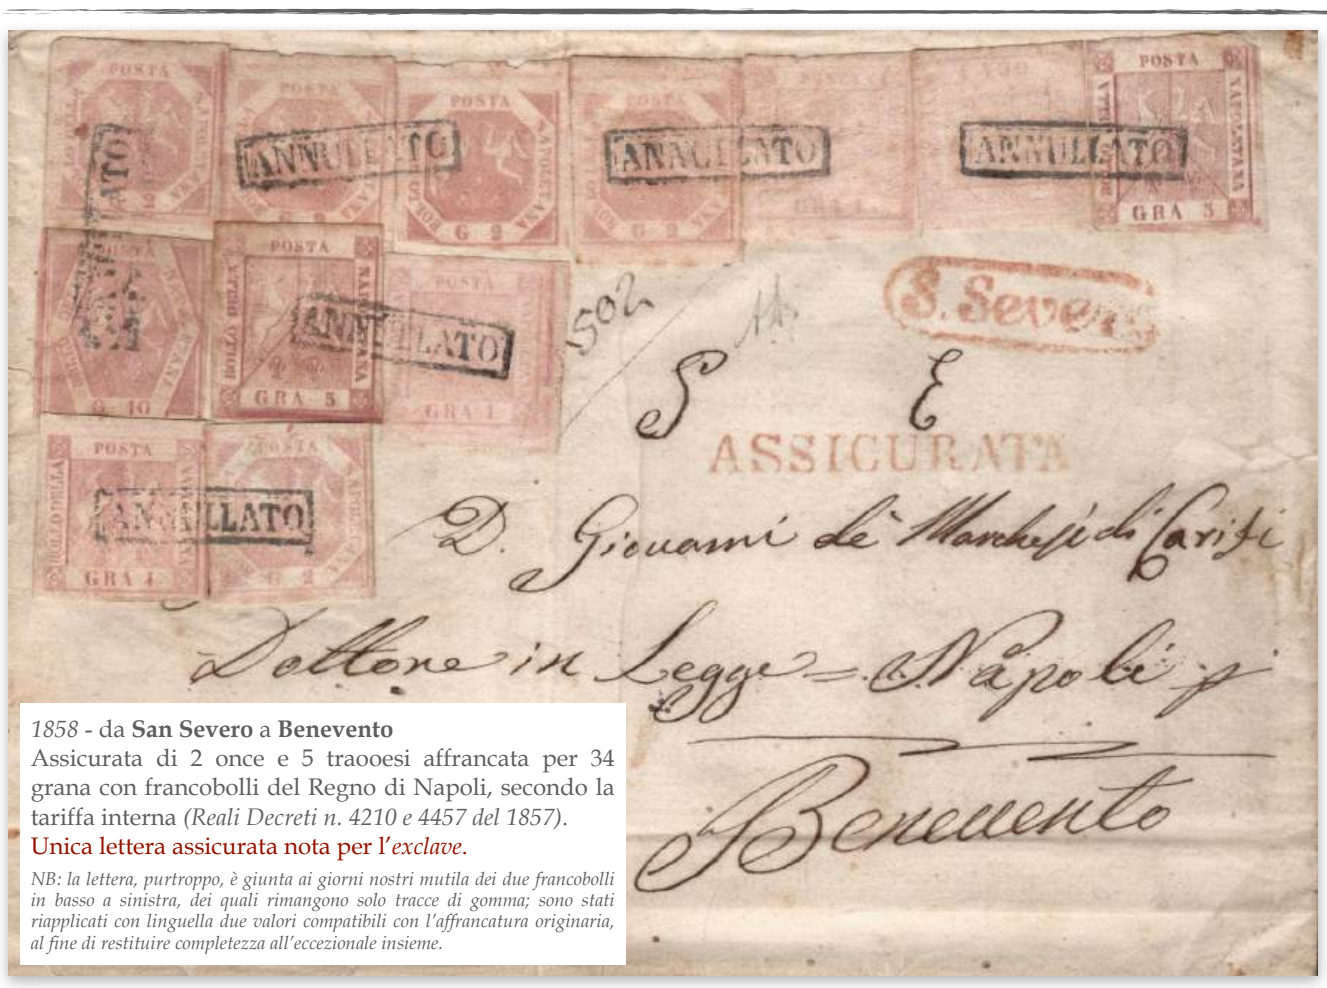 POSTA
POSTA
ANNULLATO
POSTA
ANNULLATO
ANNULLATO
POSTA
BOLLO DELLA
NAPOLETANA
GRA 5
G 2
G 2
G 2
S. Severo
POSTA
BOLLO DELLA
GRA 5
ANNULLATO
POSTA
GRA 1
G 10
502
S E
ASSICURATA
POSTA
BOLLO DELLA
ANNULLATO
GRA 1
POSTA
G 2
D. Giovanni de Marchesi di Carifi
Dottore in Legge = Napoli p
Benevento
1858 - da San Severo a Benevento
Assicurata di 2 once e 5 traooesi affrancata per 34
grana con francobolli del Regno di Napoli, secondo la
tariffa interna (Reali Decreti n. 4210 e 4457 del 1857).
Unica lettera assicurata nota per l'exclave.
NB: la lettera, purtroppo, è giunta ai giorni nostri mutila dei due francobolli
in basso a sinistra, dei quali rimangono solo tracce di gomma; sono stati
riapplicati con linguella due valori compatibili con l'affrancatura originaria,
al fine di restituire completezza all'eccezionale insieme.